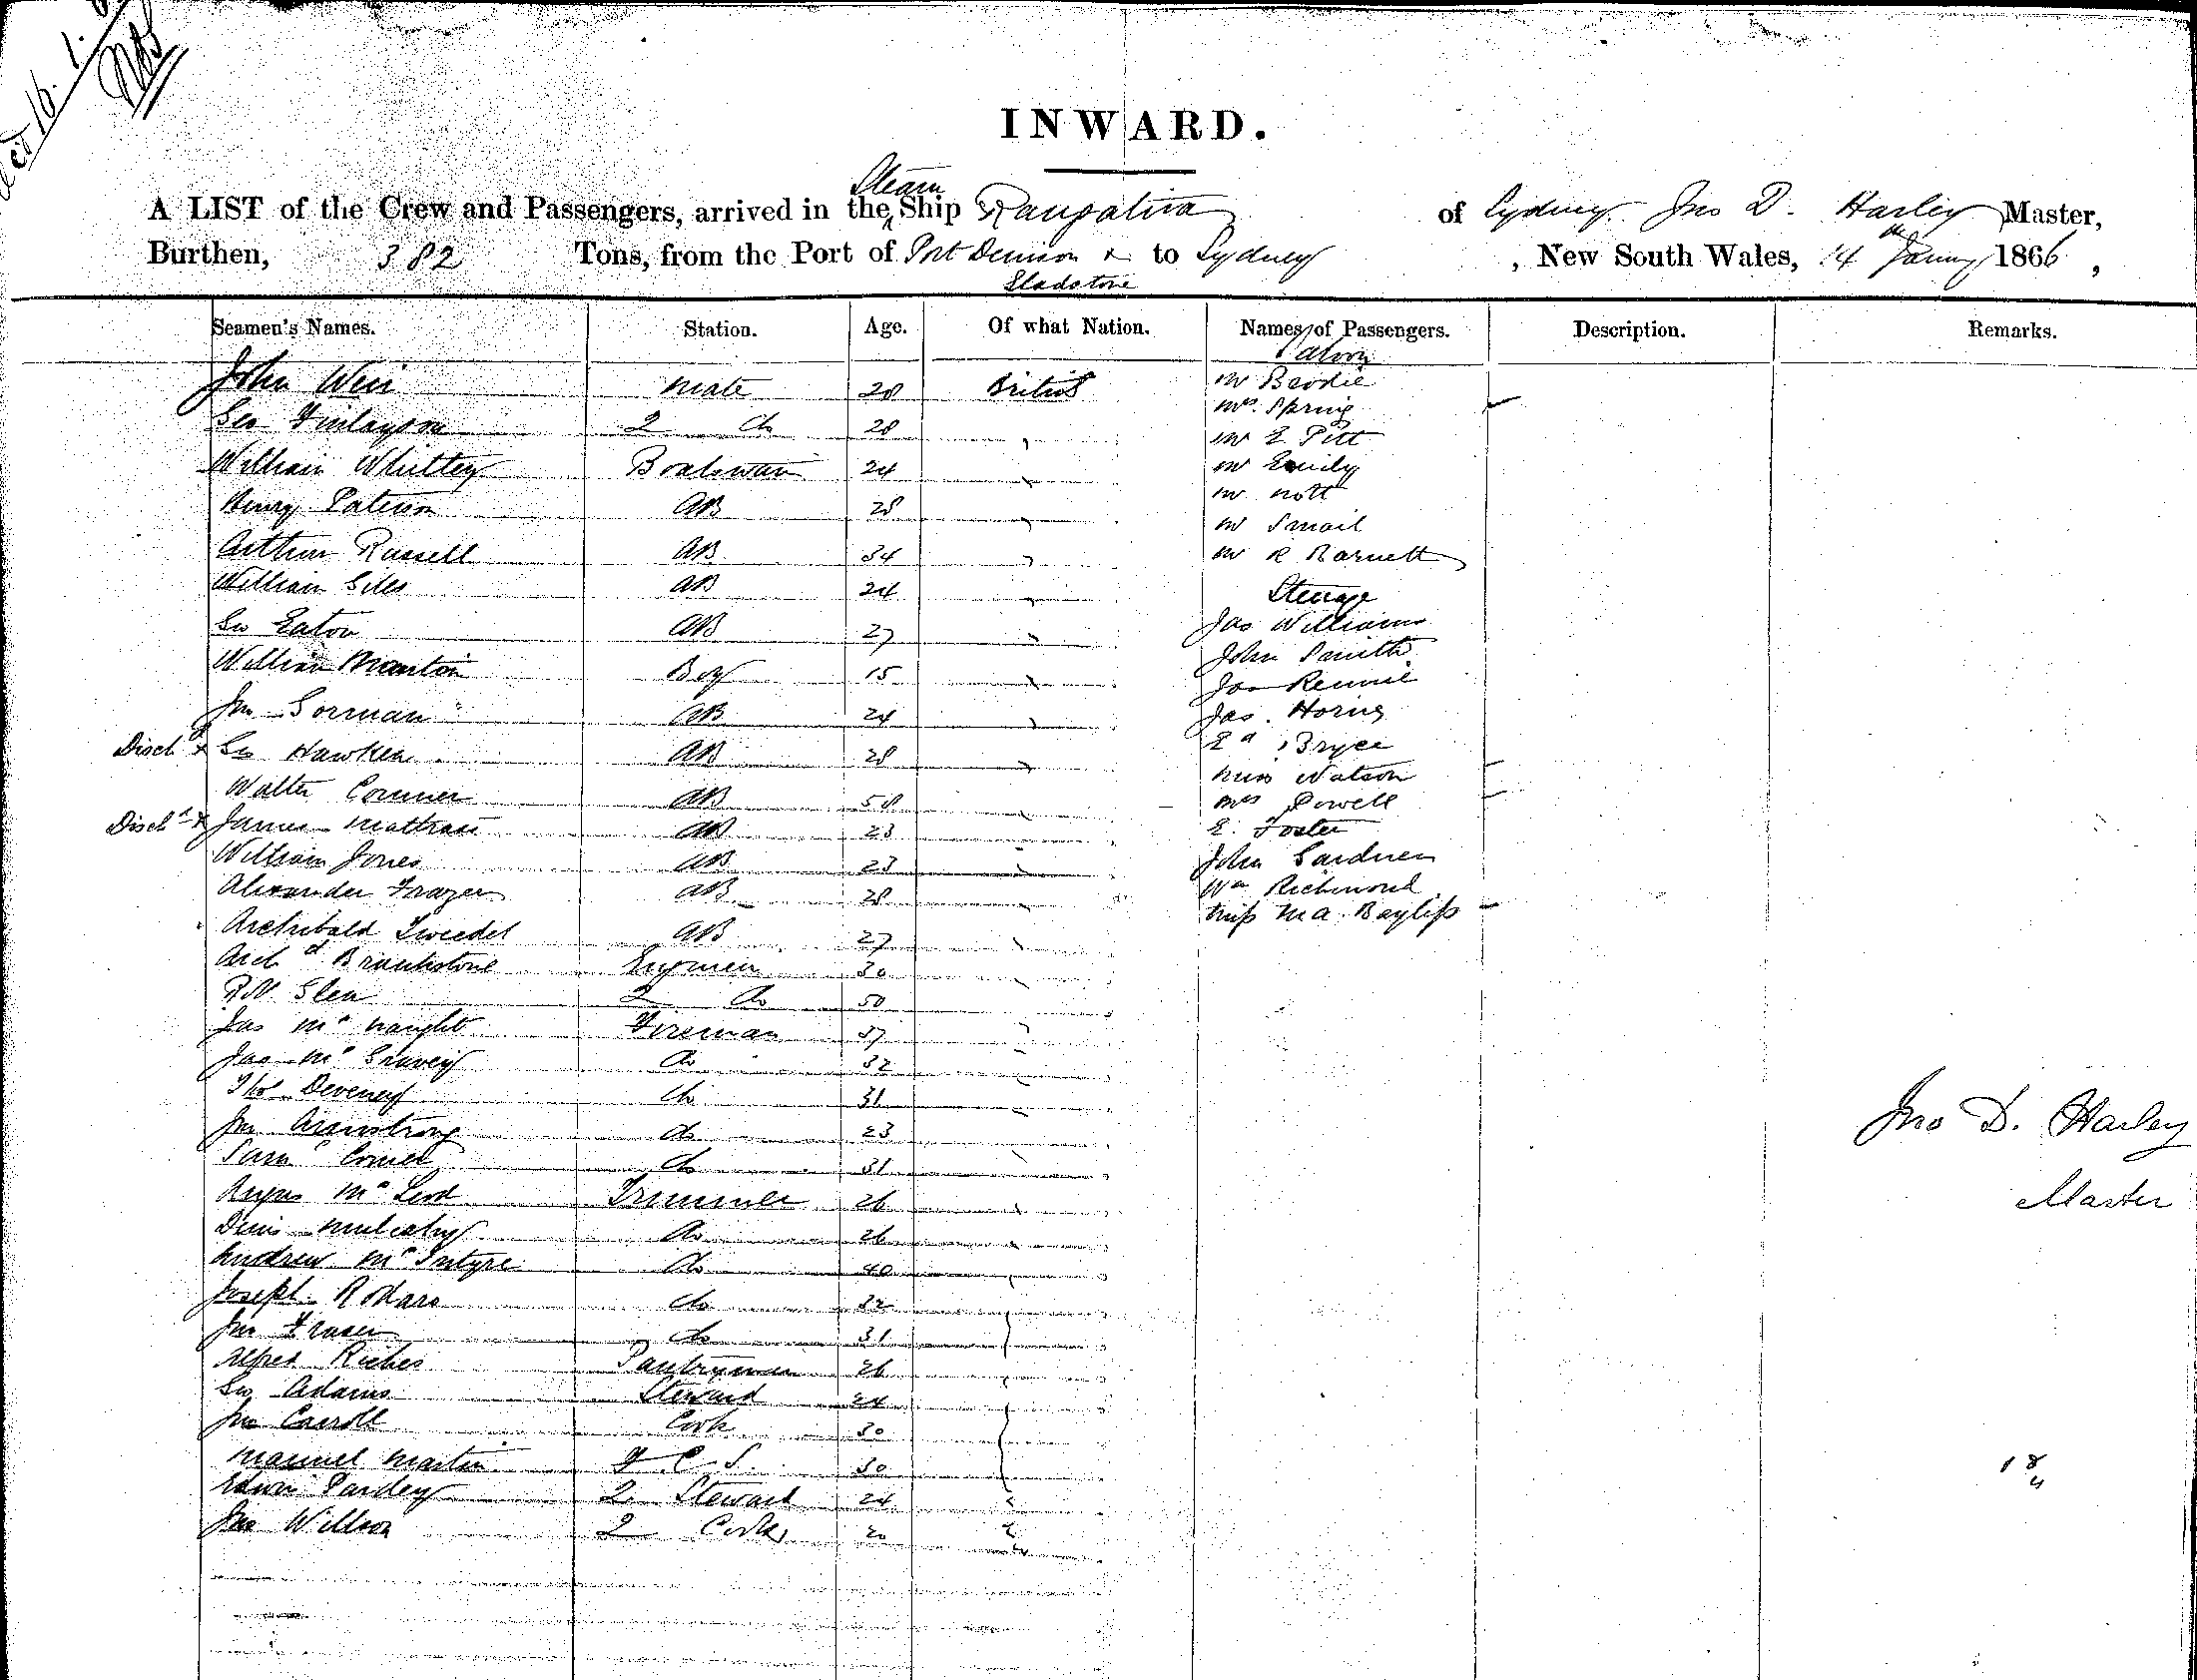 INWARD.
A LIST of the Crew and Passengers, arrived in the Steam Ship Rangatira of Sydney Jno D. Harley Master,
Burthen, 382 Tons, from the Port of Port Denison & Gladstone to Sydney, New South Wales, 14th January 1866,
Seamen's Names. Station. Age. Of what Nation. Names of Passengers. Description. Remarks.
Saloon
John Weir Mate 28 British Mr Brodie
Mrs. Spring
Geo Finlayson 2 do 28 Mr E Pitt
William Whittey Boatswain 24 Mr Emily
Henry Paterson AB 28 Mr Nott
Mr Smail
Arthur Russell AB 34 Mr R Barnett
William Giles AB 24 Steerage
Geo Eaton AB 27 Jas Williams
John Smith
William Manton Boy 15 Jas Rennie
Jno Gorman AB 24 Jas. Horne
Disch'd x Geo Hawken AB 28 Ed Bryce
Miss Watson
Walter Conner AB 58 Mrs Powell
Disch'd x James AB 23 E. Foster
William Jones AB 23 John Gardner
Alexander Frazer AB 28 Wm Richmond
Miss M A. Bayliss
Archibald Tweedel AB 27
Archd Brankstone Engineer 30
R.N. Glen 2 do 50
Jas McNaught Fireman 37
Jas McGrovey do 32
Thos Deveney do 31
Jno Armstrong do 23
Jno D. Harley
Saml Comel do 31
Angus McLeod Trimmer 26
Master
Denis Mulcahy do 26
Andrew McIntyre do 40
Joseph do 32
Jno Fraser do 31
Alfred Riches Pantryman 26
Geo Adams Steward 24
Jno Carroll Cook 30
Manuel Martin F. C. S. 30
18
4
Edwin Pardey 2 Steward 24
Jno Willson 2 Cook 20